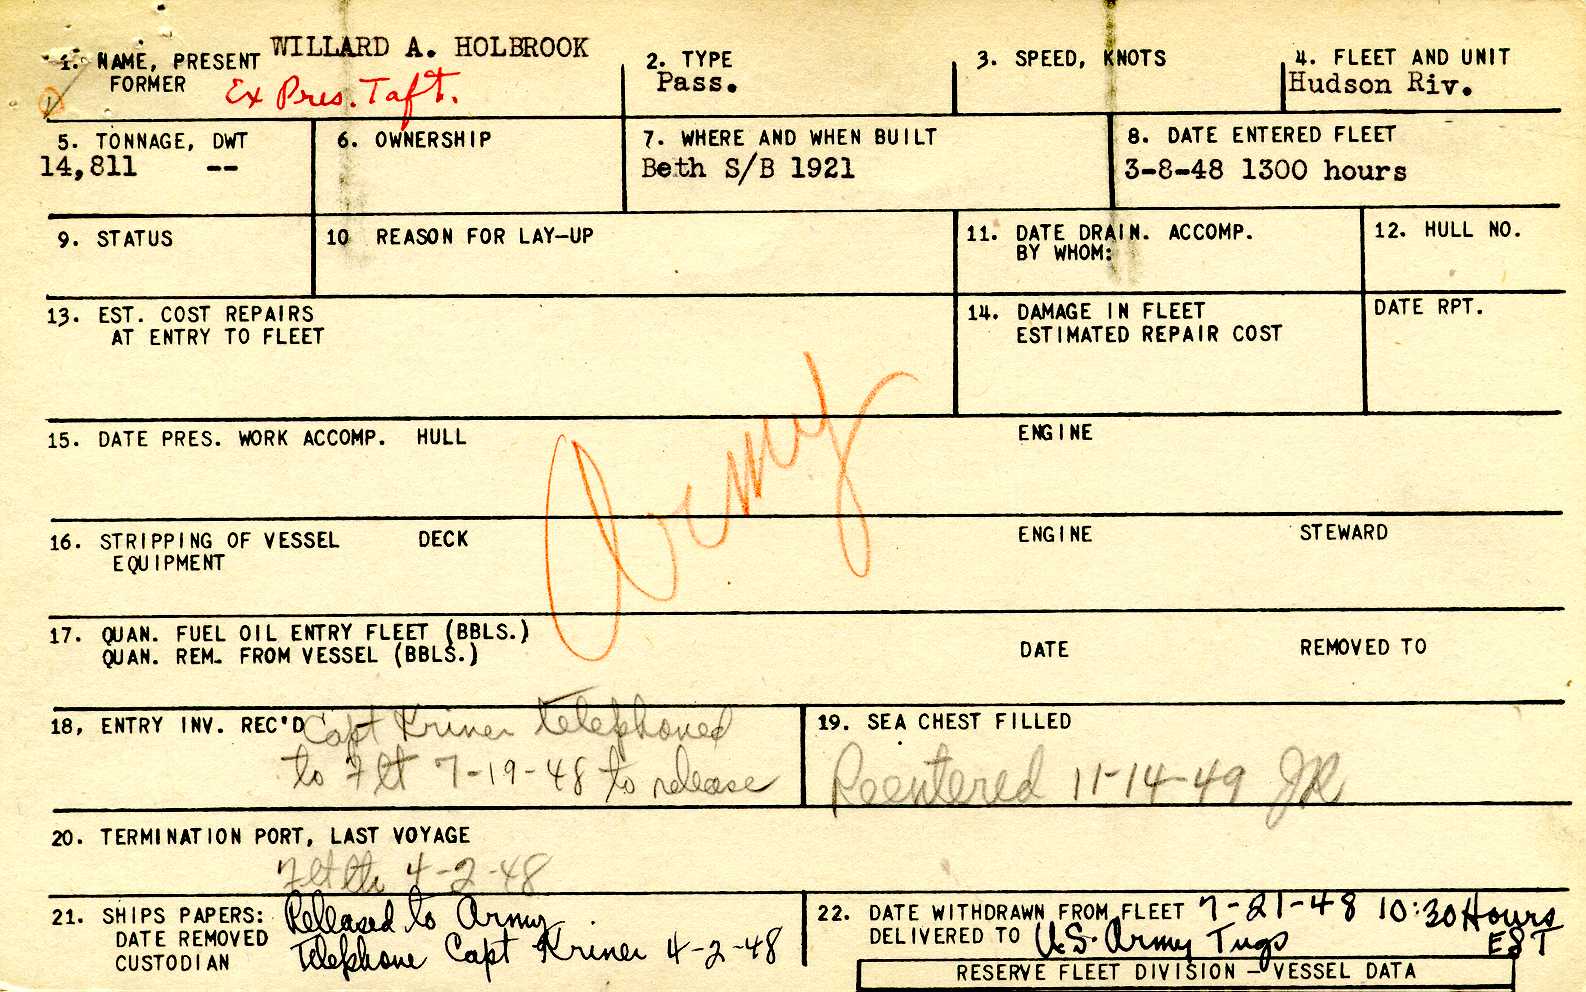 1. NAME, PRESENT WILLARD A. HOLBROOK
FORMER Ex Pres. Taft.
2. TYPE
Pass.
3. SPEED, KNOTS
4. FLEET AND UNIT
Hudson Riv.
5. TONNAGE, DWT
14,811 --
6. OWNERSHIP
7. WHERE AND WHEN BUILT
Beth S/B 1921
8. DATE ENTERED FLEET
3-8-48 1300 hours
9. STATUS
10 REASON FOR LAY-UP
11. DATE DRAIN. ACCOMP.
BY WHOM:
12. HULL NO.
13. EST. COST REPAIRS
AT ENTRY TO FLEET
14. DAMAGE IN FLEET
ESTIMATED REPAIR COST
DATE RPT.
Army
15. DATE PRES. WORK ACCOMP. HULL ENGINE
16. STRIPPING OF VESSEL DECK ENGINE STEWARD
EQUIPMENT
17. QUAN. FUEL OIL ENTRY FLEET (BBLS.)
QUAN. REM. FROM VESSEL (BBLS.) DATE REMOVED TO
18, ENTRY INV. REC'D Capt Kriner telephoned
to Flt 7-19-48 to release
19. SEA CHEST FILLED
Reentered 11-14-49 JR
20. TERMINATION PORT, LAST VOYAGE
4-2-48
21. SHIPS PAPERS: Released to Army
DATE REMOVED telephone Capt Kriner 4-2-48
CUSTODIAN
22. DATE WITHDRAWN FROM FLEET 7-21-48 10:30 Hours
DELIVERED TO U.S. Army Tugs EST
RESERVE FLEET DIVISION – VESSEL DATA